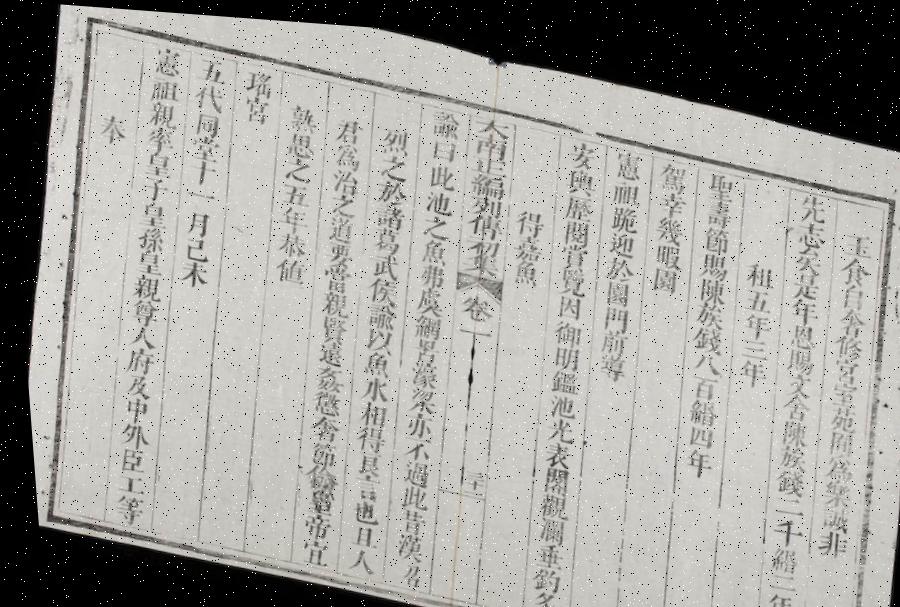 玉食自奢修宮室苑囿為樂誠非
先志矣是年恩賜文舍陳族錢一千緡二年
租五年三年
聖壽節賜陳族錢八百緡四年
駕幸幾暇園
憲祖跪迎於園門前導
安輿歷閱賞覽因御明鑑池光表閣觀瀾垂釣
得嘉魚
大南正編列傳初集 卷一 二十二
諭曰此池之魚弗虞網罟濠梁亦不過此昔漢
烈之於諸葛武侯諭以魚水相得其言也且人
君為治之道要當親賢遠奸懲奢節儉皇帝宜
熟思之五年恭值
瑤宮
五代同堂十一月己未
憲祖親率皇子皇孫皇親尊人府及中外臣工等
奉